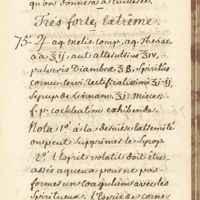 qu'on donnera à cuillerée.
Très forte, Extrême.
75- ♃ aq. Melis. comp. aq. Theriac.
a a ʒij. aut allestultius ʒiv.
pulveris Diambræ ʒß. Spiritus
cornu cervi Rectificatissimi ʒj-ij,
Syrup de Kinnam. ʒj. Misce.
f. p. cochleatim exhibenda.
Nota 1° à la derniere extremité
on peut supprimer le Syrop
2° l'Esprit volatil doit être
assés aqueux pour ne pas
former un Coagulum avec les
Spiritueux. l'Esprit de corne